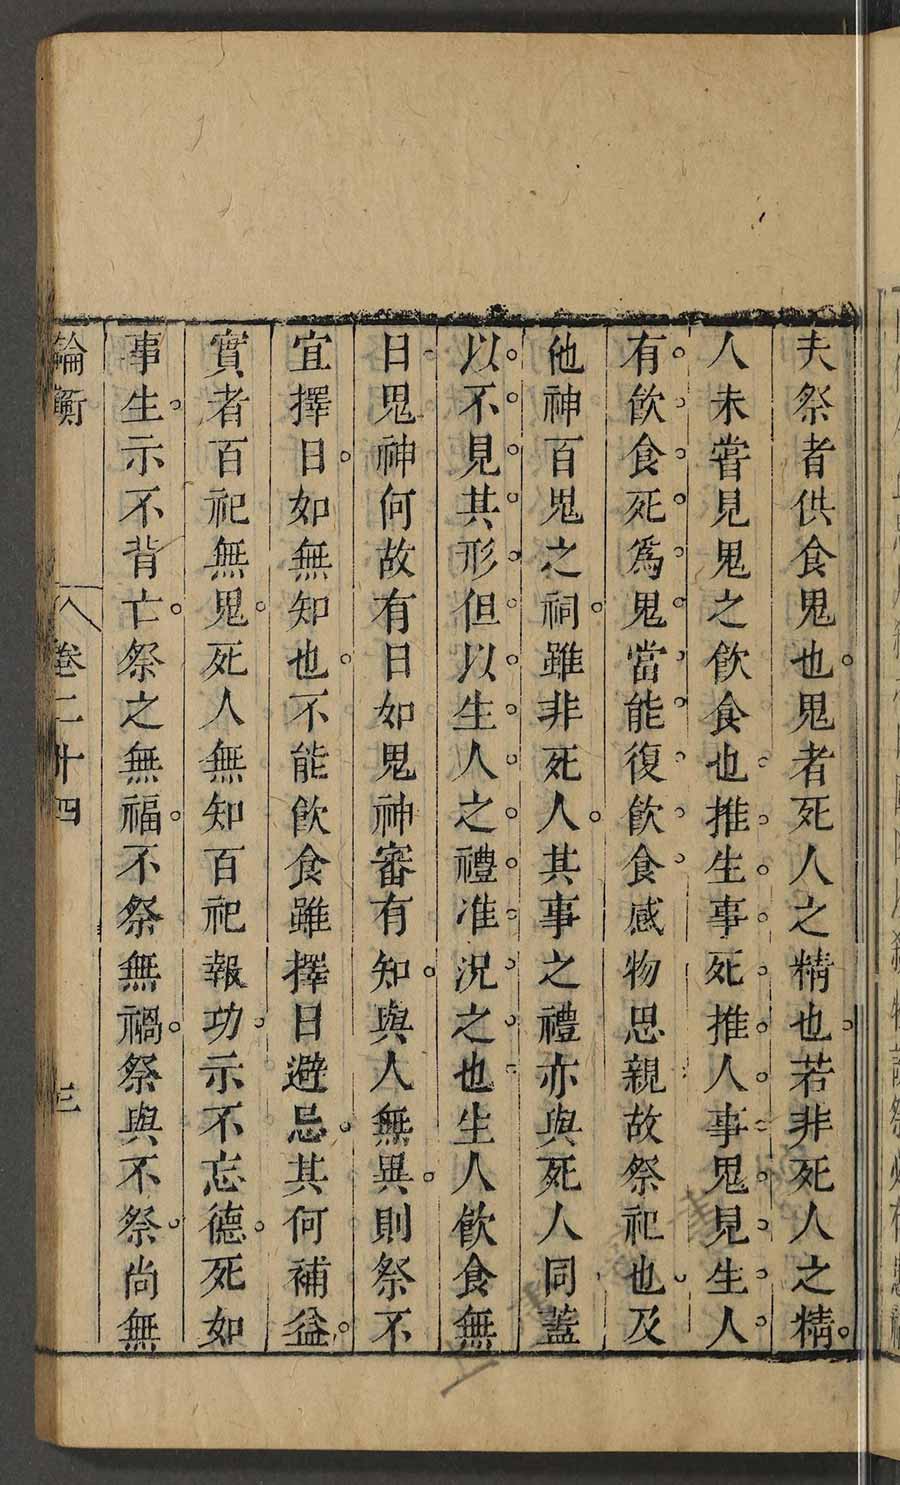 夫祭者供食鬼也。鬼者死人之精也。若非死人之精。
人未嘗見鬼之飲食也。推。生。事。死。推。人。事。鬼。見。生。人。
有。飲。食。死。爲。鬼。當。能。復。飲。食。感物思親故祭祀也。及
他神百鬼之祠。雖非死人。其事之禮亦與死人同蓋
以。不。見。其。形。但。以。生。人。之。禮。准。況。之。也。生人飲食無
日。鬼神何故有日如鬼神審有知。與人無異。則祭不
宜擇日。如無知也。不能飲食雖擇日避忌。其何補益。
實者百祀無鬼。死人無知百祀報功。示不忘德。死如
事生。示不背亡。祭之無福。不祭無禍。祭與不祭。尚無
論衡 卷二十四 三